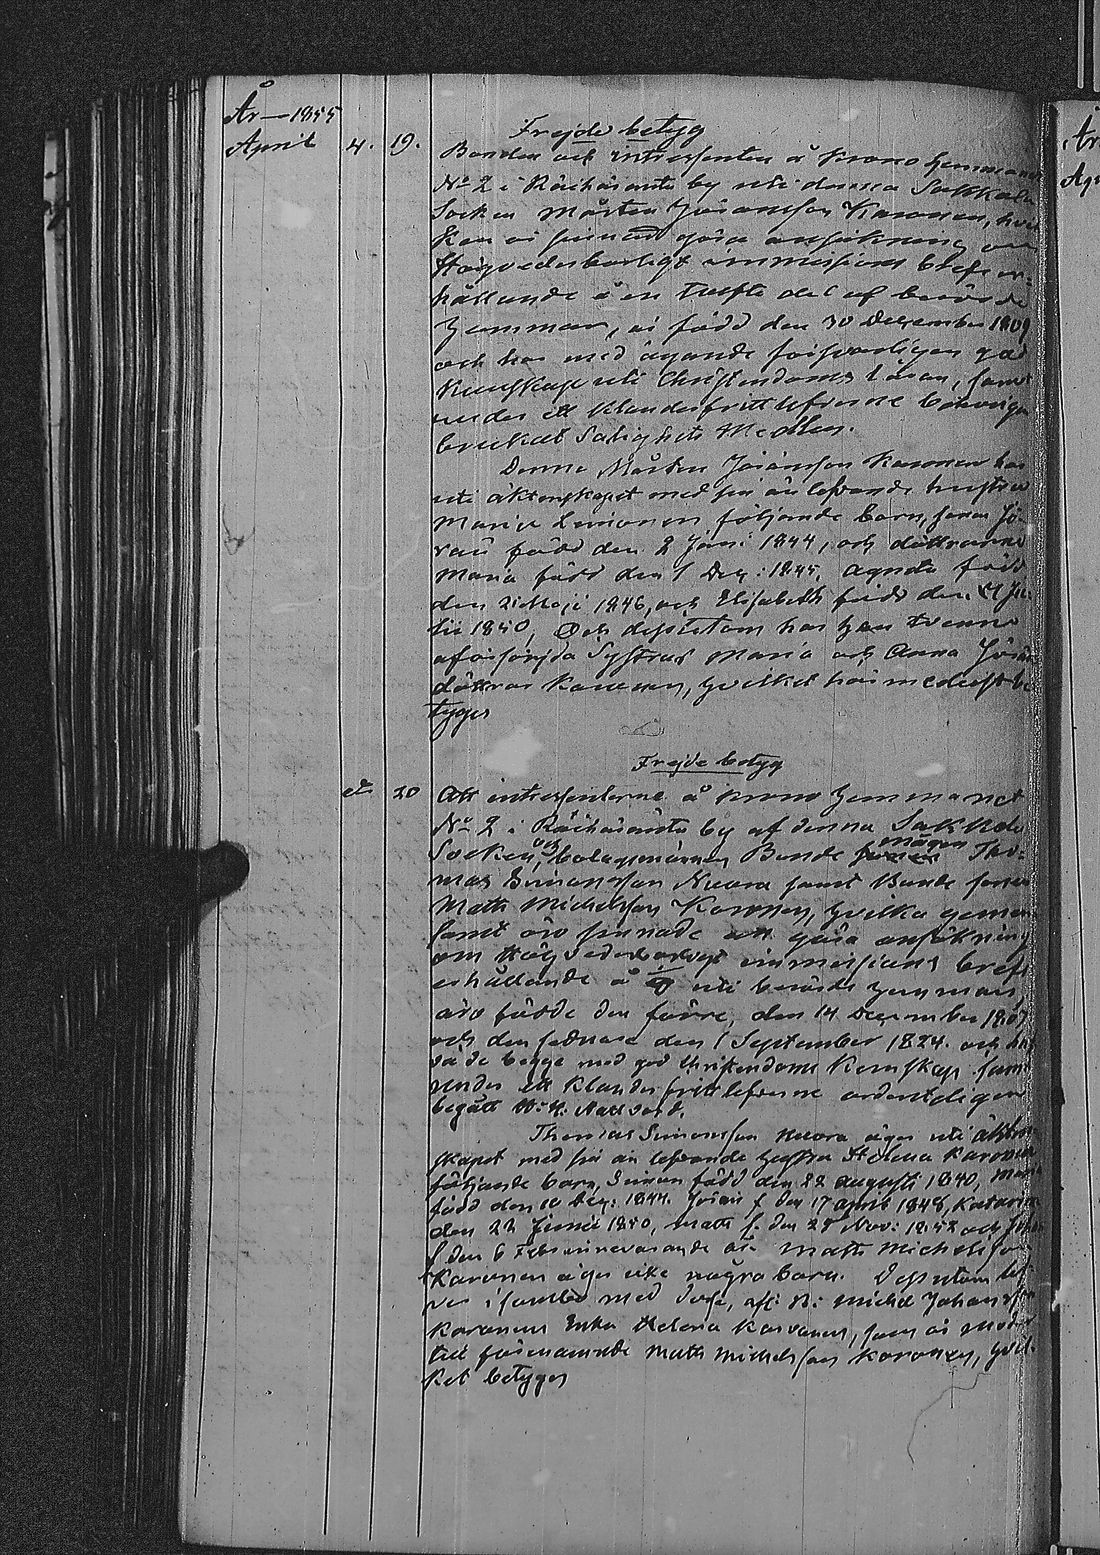 År 1855
Frejde betyg
April 4. 19. Bonden och intressenten å Krono hemmanet
No 2 i Räihäranta by uti denna Sakkola
Socken Mårten Jöransson Karonen, hvil
ken är sinnad göra ansökning om
Högvederbörligt immissions bref er-
hållande å en tolfte del af berörde
hemman, är född den 30 December 1809
och har med ägande försvarligen god
Kunskap uti Christendoms Läran, samt
under ett klanderfritt lefverne behörigen
brukat Salighets Medlen.
Denne Mårten Jöransson Karonen har
uti äktenskapet med sin än lefvande hustru
Maria Simonen följande barn, sonen Jö-
ran född den 2 Juni 1844, och döttrarne
Maria född den 1 Dec: 1845, Agneta född
den 21 Maji 1846, och Elisabeth född den Ju-
lii 1850, Och dessutom har han tvenne
oförsörjda Systrar Maria och Anna Jörans
döttrar Karonen, hvilket härmedelst be
tyges
Frejde betyg
et. 20 Att intressenterne å Krono hemmanet
No 2 i Räihäranta by af denna Sakkola
Socken, och bolagsmännen Bonde mågen Tho-
mas Simonsson Nuora samt Bonde sonen
Matts Michelsson Karonen, hvilka gemen
samt äro sinnade att göra ansökning
om Högvederbörligt immissions brefs
erhållande å uti berörde hemman,
äro födde den förre, den 14 December 1807
och den sednare den 1 September 1824. och haf
va de begge med god Christendoms Kunskap samt
under ett klanderfritt lefverne ordentligen
begått H: H: Nattvard.
Thomas Simonsson Nuora äger uti äkten
skapet med sin än lefvande hustru Helena Karonen
följande barn, Simon född den 22 Augusti 1840, Maria
född den 10 Dec: 1844. Jöran f. den 17 April 1848, Katarina
den 22 Junii 1850, Matts f. den 28 Nov: 1852 och
f. den 6 Febr innevarande år. Matts Michelsson
Karonen äger icke några barn. Dessutom lef
ver i samlad med desse, afl: B: Michel Johansson
Karonens Enka Helena Karonen, som är moder
till förenämnde Matts Michelsson Karonen, hvil-
ket betyges